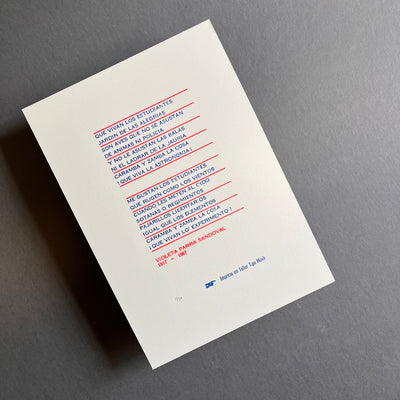 QUE VIVAN LOS ESTUDIANTES
JARDIN DE LAS ALEGRIAS
SON AVES QUE NO SE ASUSTAN
DE ANIMAS NI POLICIA
Y NO LE ASUSTAN LAS BALAS
NI EL LADRAR DE LA JAURIA
CARAMBA Y ZAMBA LA COSA
¡ QUE VIVA LA ASTRONOMIA !
ME GUSTAN LOS ESTUDIANTES
QUE RUGEN COMO LOS VIENTOS
CUANDO LES METEN AL OIDO
SOTANAS O REGIMIENTOS
PAJARILLOS LIBERTARIOS
IGUAL QUE LOS ELEMENTOS
CARAMBA Y ZAMBA LA COSA
¡ QUE VIVAN LO' EXPERIMENTO !
VIOLETA PARRA SANDOVAL
1917 - 1967
Impreso en Taller Tipo Móvil